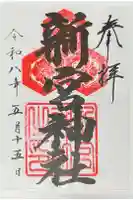 奉拝
新宮神社
令和八年五月十五日